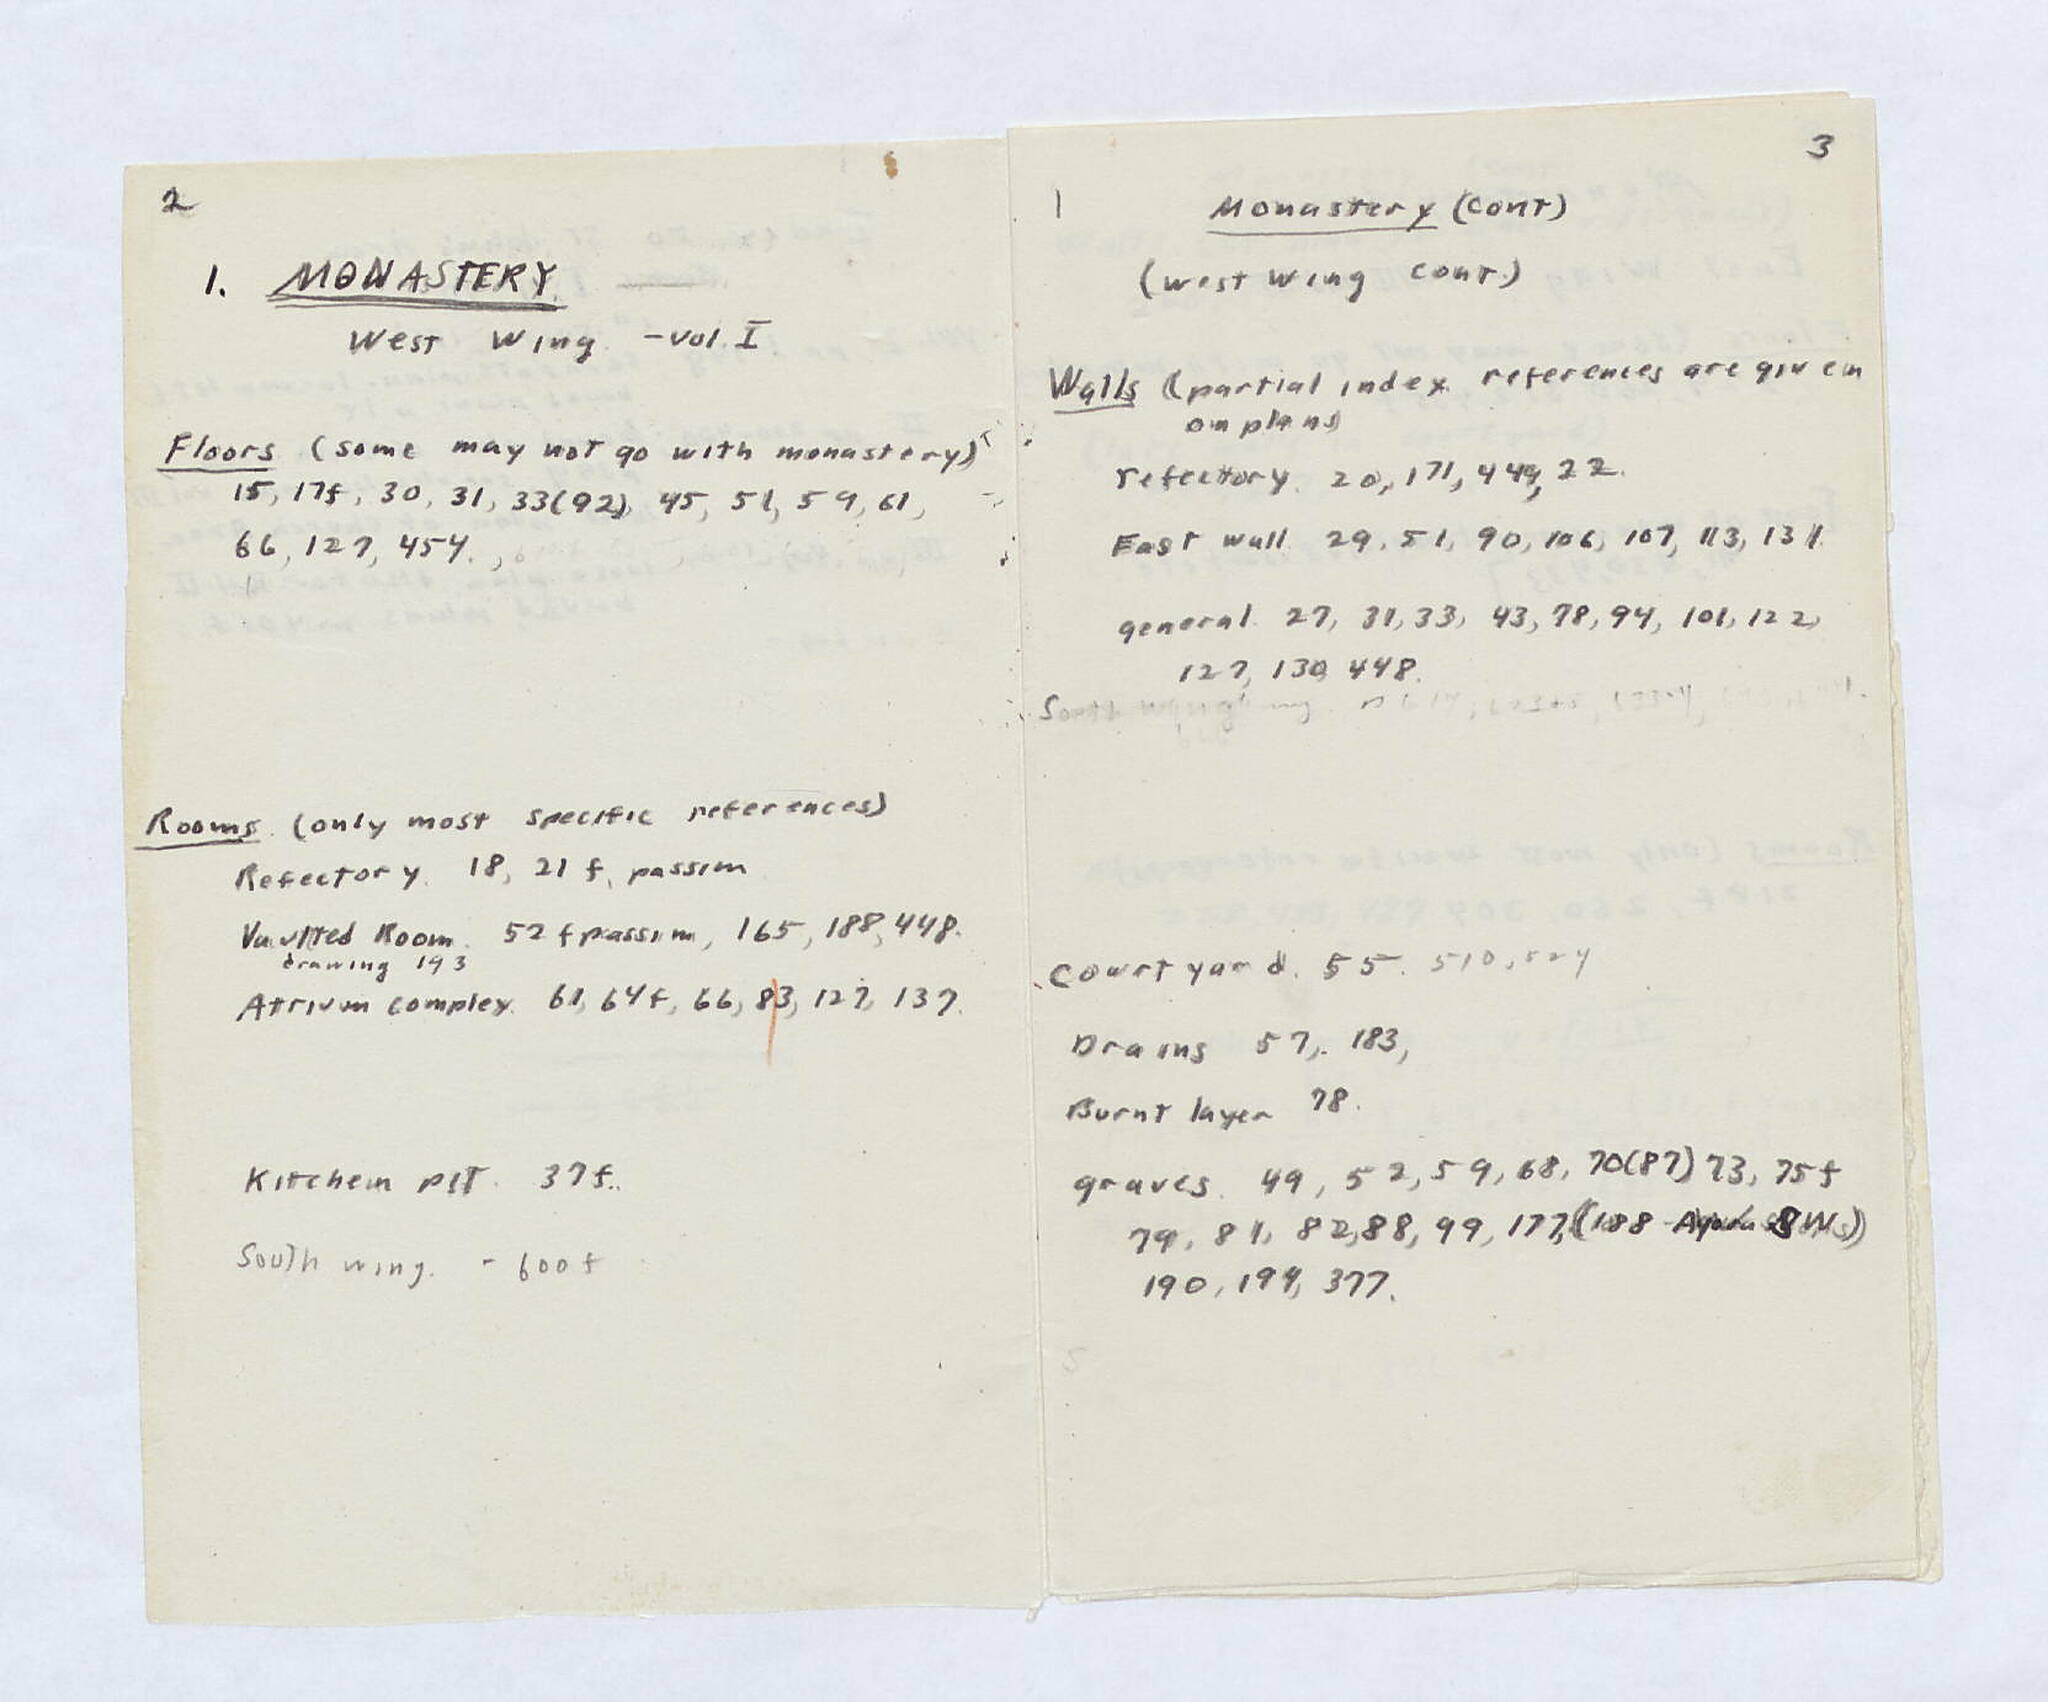 2
1. MONASTERY
West Wing - vol. I
Floors (some may not go with monastery)
15, 17f, 30, 31, 33(92), 45, 51, 59, 61,
66, 127, 454.
Rooms (only most specific references)
Refectory. 18, 21 f, passim
Vaulted Room. 52 f passim, 165, 188, 448.
drawing 193
Atrium complex. 61, 64f, 66, 83, 127, 137.
Kitchen pit. 37f.
South wing. - 600f
3
1 Monastery (cont)
(West Wing cont.)
Walls (partial index references are given
on plans)
refectory. 20, 171, 449, 22.
East wall 29, 51, 90, 106, 107, 113, 131.
general. 27, 31, 33, 43, 78, 94, 101, 122,
127, 130, 448.
South
Courtyard. 55. 510, 524
Drains 57, 183,
Burnt layer 78.
graves. 49, 52, 59, 68, 70(87) 73, 75f
79, 81, 82, 88, 99, 177, (188
190, 194, 377.